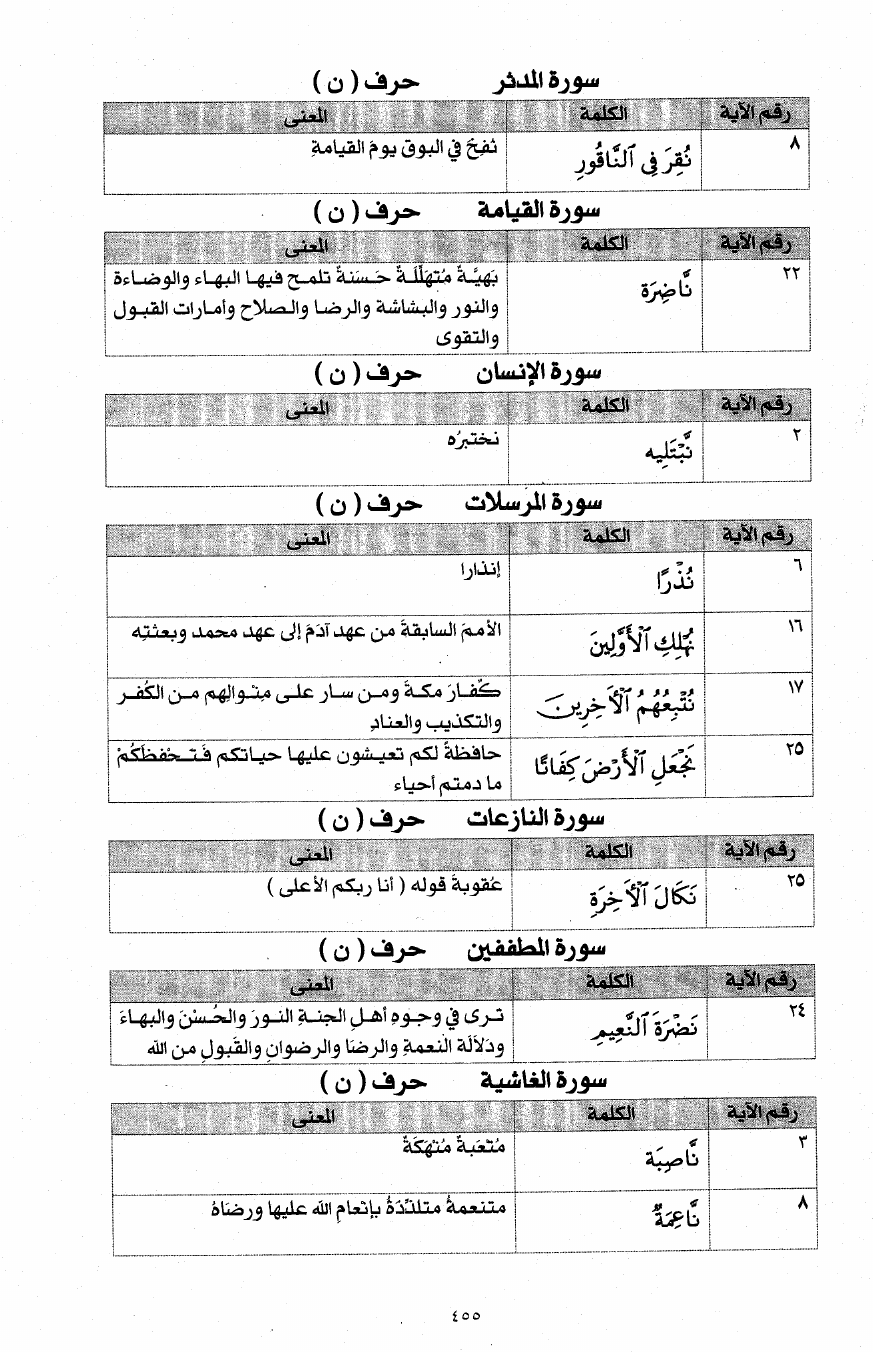 سورة المدثر حرف ( ن )
رقم الآية الكلمة المعنى
٨ نُقِرَ فِى ٱلنَّاقُورِ نُفِخَ في البوق يومَ القيامةِ
سورة القيامة حرف ( ن )
رقم الآية الكلمة المعنى
٢٢ نَّاضِرَة بَهيَّـةٌ مُتهَلِّلَـةٌ حَـسَنةٌ تلمـح فيهـا البهـاء والوضـاءة
والنور والبشاشة والرضـا والـصلاح وأمـارات القبـول
والتقوى
سورة الإنسان حرف ( ن )
رقم الآية الكلمة المعنى
٢ نَّبْتَلِيه نختبرُه
سورة المرسلات حرف ( ن )
رقم الآية الكلمة المعنى
٦ نُذْرًا إنذارا
١٦ نُهْلِكِ ٱلْأَوَّلِينَ الأممَ السابقةَ من عهد آدَمَ إلى عهد محمد وبعثتِه
١٧ نُتْبِعُهُمُ ٱلْأَخِرِينَ كُفـارَ مكـةَ ومـن سـار علـى مِنْـوالِهِم مـن الكُفـر
والتكذيب والعنادِ
٢٥ نَجْعَلِ ٱلْأَرْضَ كِفَاتًا حافظةً لكم تعيـشون عليهـا حيـاتكم فَـتـحْفظَكُمْ
ما دمتم أحياء
سورة النازعات حرف ( ن )
رقم الآية الكلمة المعنى
٢٥ نَكَالَ ٱلْأَخِرَةِ عُقوبةَ قوله ( أنا ربكم الأعلى )
سورة المطففين حرف ( ن )
رقم الآية الكلمة المعنى
٢٤ نَضْرَةَ ٱلنَّعِيمِ تـرى في وجـوهِ أهـلِ الجنـةِ النـورَ والحُسْنَ والبهـاءَ
ودَلَالَة النعمةِ والرضَا والرضوانِ والقَبولِ من الله
سورة الغاشية حرف ( ن )
رقم الآية الكلمة المعنى
٣ نَّاصِبَة مُتْعَبةٌ مُنْهَكَةٌ
٨ نَّاعِمَةٌ متنعمةُ متلذِّذةُ بإنْعامِ الله عليها ورِضَاهُ
٤٥٥